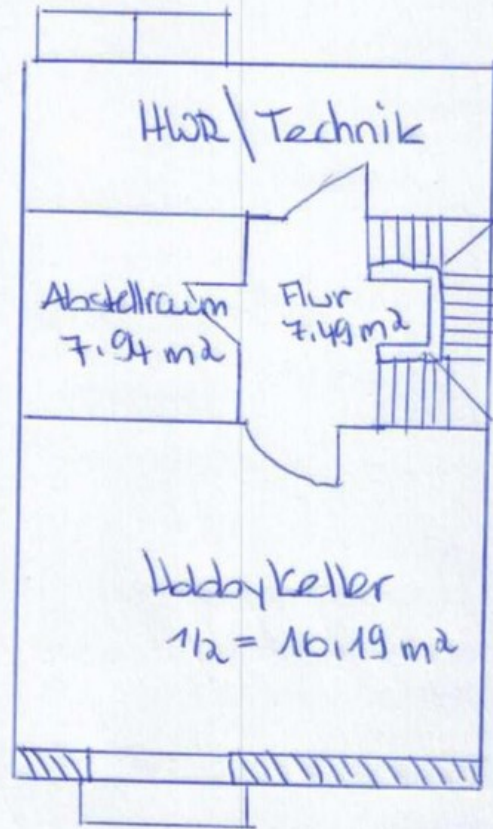 HWR\Technik
Abstellraum
7,94 m²
Flur
7,49 m²
Hobbykeller
1/2 = 16,19 m²